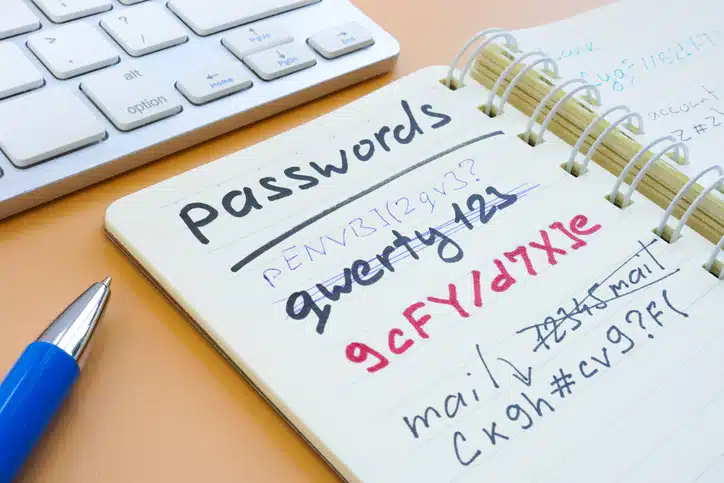 > .
? /
alt
option
Home
PgUp
PgDn
End
passwords
pENVB](2gv3?
qwerty 123
gcFY/d7X]e
12345mail
mail
Ckgh#cv9?F(
bank
account